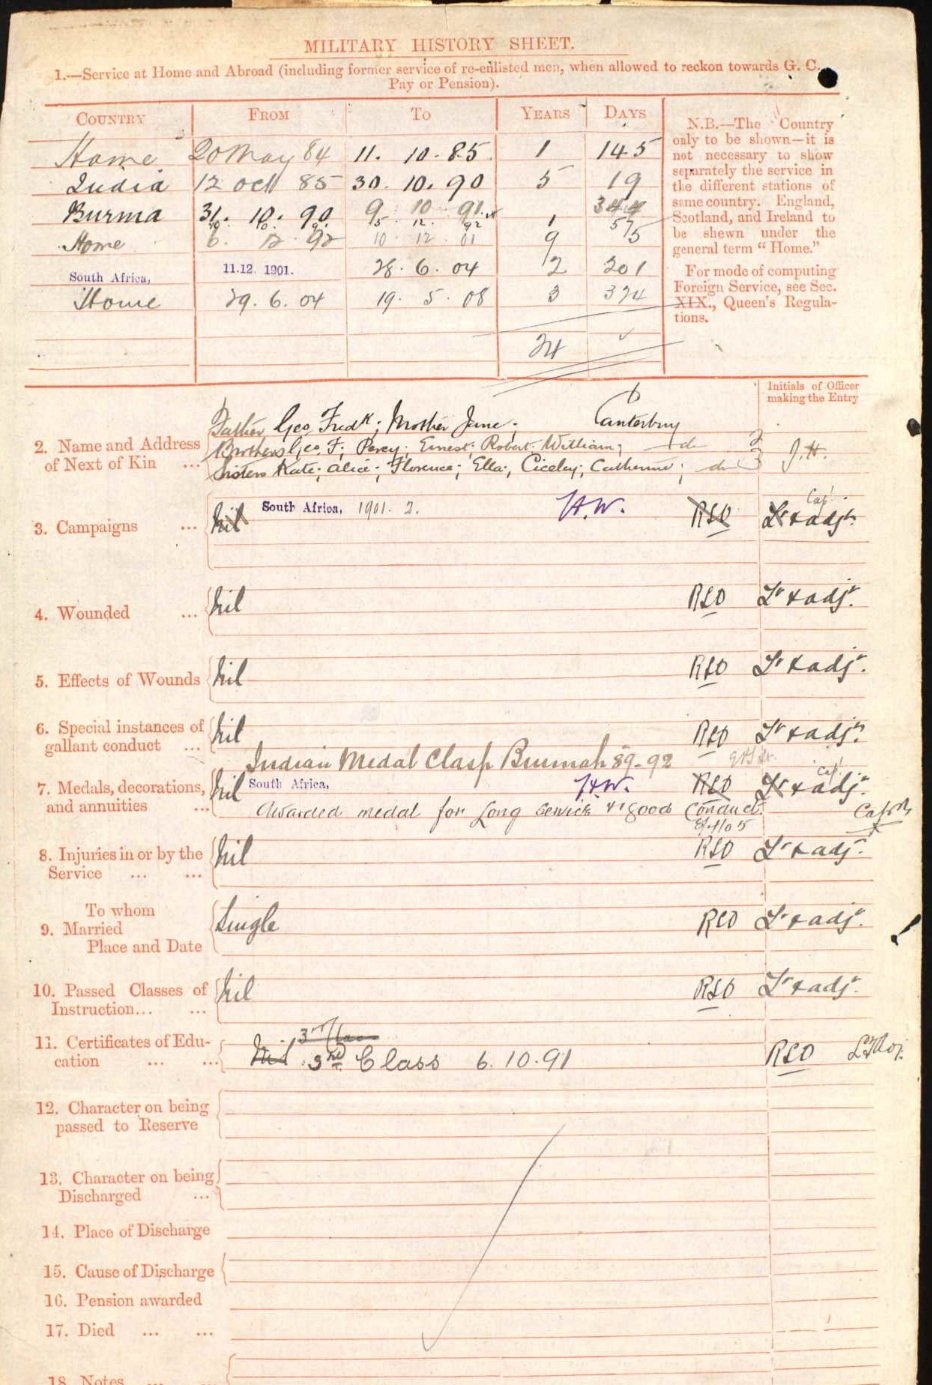 MILITARY HISTORY SHEET.
1.—Service at Home and Abroad (including former service of re-enlisted men, when allowed to reckon towards G. C.
Pay or Pension).
COUNTRY FROM TO YEARS DAYS
Home 20 May 84 11. 10. 85. 1 145
India 12 Oct 85 30. 10. 90 5 19
Burma 31. 10. 90 9 10 91. 344
Home 6. 12. 92 10 12 01 9 5
South Africa, 11.12. 1901. 28. 6. 04 2 201
Home 29. 6. 04 19. 5. 08 3 324
24
N.B.—The Country
only to be shown—it is
not necessary to show
separately the service in
the different stations of
same country. England,
Scotland, and Ireland to
be shewn under the
general term "Home."
For mode of computing
Foreign Service, see Sec.
XIX., Queen's Regula-
tions.
Initials of Officer
making the Entry
2. Name and Address
of Next of Kin ...
Father Geo Fredk; Mother Jane. Canterbury
Brothers Geo F; Percy; Ernest; Robert William; do
Sisters Kate; Alice; Florence; Ella; Ciceley; Catherine; do J.H.
3. Campaigns ... Nil South Africa, 1901. 2. H.W. RSO Capt. Lt & adjt.
4. Wounded ... Nil RSO Lt & adjt.
5. Effects of Wounds Nil RSO Lt & adjt.
6. Special instances of
gallant conduct ... Nil RSO Lt & adjt.
Indian Medal Clasp Burmah 89-92
7. Medals, decorations,
and annuities ... Nil South Africa, H.W. RSO Capt Lt & adjt.
Awarded medal for Long Service & Good Conduct. Capt
8. Injuries in or by the
Service ... ... Nil RSO Lt & adjt.
To whom
9. Married
Place and Date Single RSO Lt & adjt.
10. Passed Classes of
Instruction... ... Nil RSO Lt & adjt.
11. Certificates of Edu-
cation ... ... Nil 3rd Class
3rd Class 6. 10. 91 RSO
12. Character on being
passed to Reserve
13. Character on being
Discharged ...
14. Place of Discharge
15. Cause of Discharge
16. Pension awarded
17. Died ... ...
18. Notes ... ...